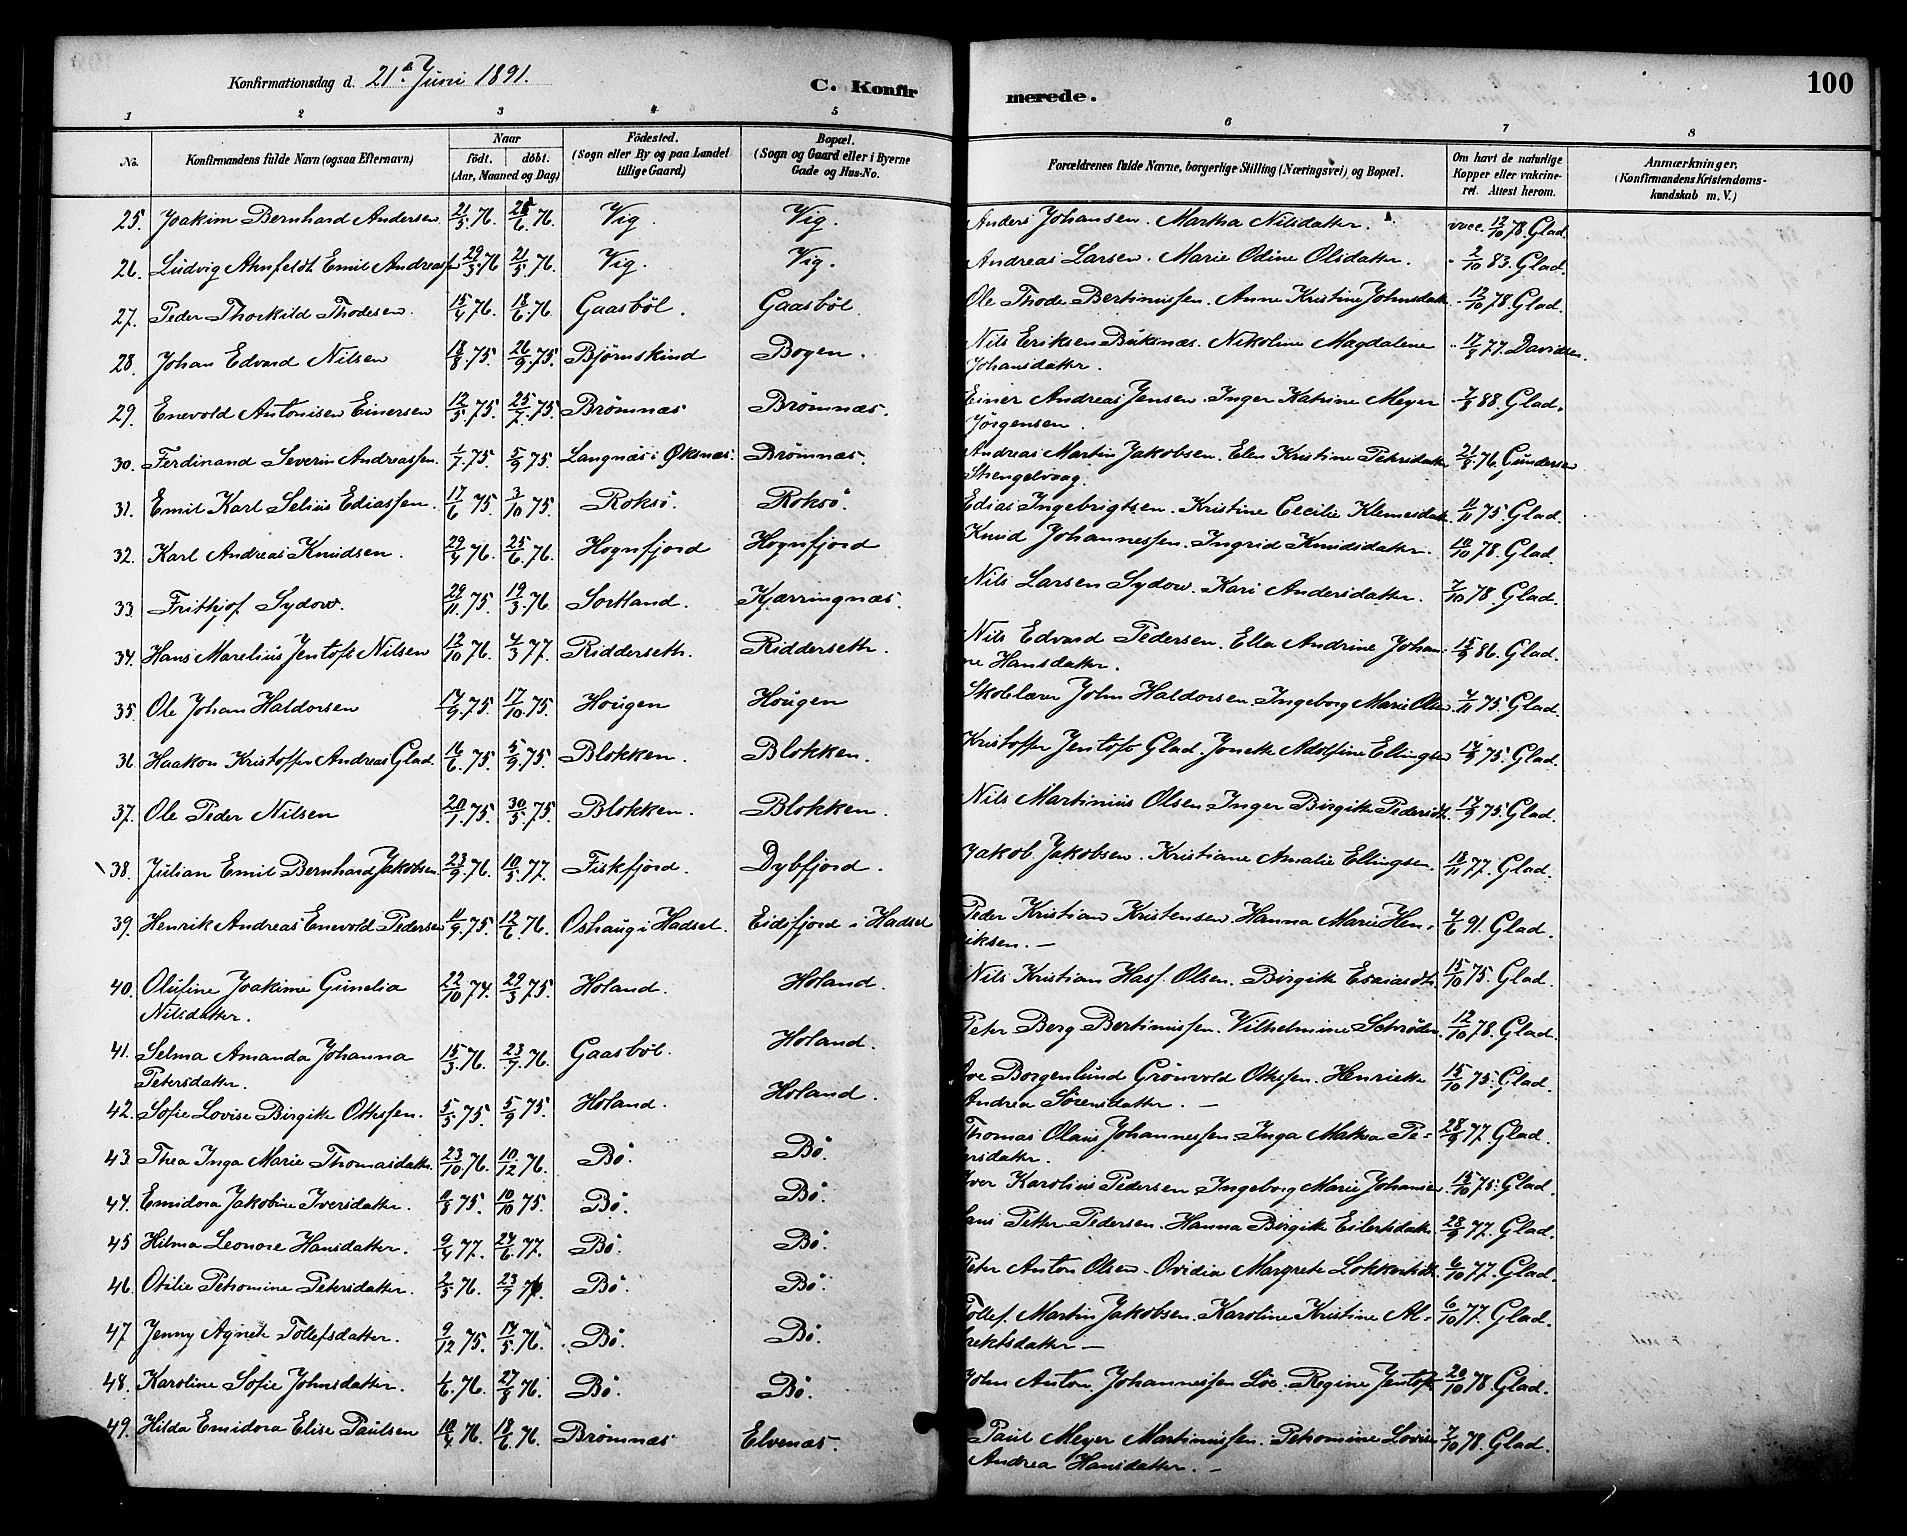 100
Konfirmationsdag d. 21de Juni 1891.
C. Konfirmerede.
1 2 3 4 5 6 7 8
No. Konfirmandens fulde Navn (ogsaa Efternavn) Naar födt. döbt. (Aar, Maaned og Dag) Födested. (Sogn eller By og paa Landet tillige Gaard) Bopæl. (Sogn og Gaard eller i Byerne Gade og Hus-No. Forældrenes fulde Navne, borgerlige Stilling (Næringsvei) og Bopæl. Om havt de naturlige Kopper eller vakcineret. Attest herom. Anmærkninger. (Konfirmandens Kristendomskundskab m. V.)
25. Joakim Bernhard Andersen 21/5 76. 25/6 76. Vig. Vig. Anders Johansen. Martha Nilsdatter. vacc. 12/10 78. Glad.
26. Ludvig Ahnfeldt Emil Andreass. 29/3 76 21/5 76. Vig. Vig. Andreas Larsen. Marie Odine Olsdatter. " 2/10 83. Glad.
27. Peder Thorkild Thodesen. 15/4 76. 18/6 76. Gaasböl. Gaasböl Ole Thode Bertinussen. Anne Kristine Johnsdatt. 12/10 78. Glad.
28. Johan Edvard Nilsen 18/8 75. 26/9 75. Bjørnskind Bogen. Nils Eriksen Buksnæs. Nikoline Magdalene Johansdatter. 17/9 77. Davidsen.
29. Enevold Antonisen Einersen 12/5 75. 25/7 75. Brömnæs Brömnæs. Einer Andreas Jensen. Inger Katrine Meyer Jörgensen. 7/8 88. Glad.
30. Ferdinand Severin Andreassen. 1/7 75. 5/9 75. Langnæs i Øksnæs. Brömnæs. Andreas Martin Jakobsen. Elen Kristine Petersdatter Stengelvaag. 21/8 76. Gundersen
31. Emil Karl Selius Ediassen. 17/6 75. 3/10 75. Roksö. Roksö. Edias Ingebrigtsen. Kristine Cecilie Klemesdatt. 11/11 75 Glad.
32. Karl Andreas Knudsen. 29/4 76. 25/6 76. Hognfjord Hognfjord Knud Johannessen. Ingrid Knudsdatter. 10/10 78. Glad.
33. Frithjof Sydow. 29/11 75. 19/3 76 Sortland. Kjærringnæs. Nils Larsen Sydow. Kari Andersdatter. 7/10 78. Glad.
34. Hans Marelius Jentoft Nilsen 12/10 76. 4/3 77. Riddersetr. Riddersetr. Nils Edvard Pedersen. Ella Andrine Johanne Hansdatter. 15/9 86. Glad.
35. Ole Johan Haldorsen 14/9 75. 17/10 75. Hougen Hougen Skolelærer John Haldorsen. Ingeborg Marie Olsen. 7/11 75. Glad.
36. Haakon Kristoffer Andreas Glad. 16/6 75. 5/9 75. Blokken. Blokken. Kristoffer Jentoft Glad. Jonette Adolfine Ellingsen 17/9 75. Glad.
37. Ole Peder Nilsen 20/1 75. 30/5 75. Blokken. Blokken. Nils Martinius Olsen. Inger Birgitte Pedersdt. 17/9 75. Glad.
38. Julian Emil Bernhard Jakobsen. 23/9 76. 10/5 77. Fiskfjord. Dybfjord. Jakob Jakobsen. Kristiane Amalie Ellingsen. 18/11 77. Glad.
39. Henrik Andreas Enevold Pedersen 11/9 75. 12/6 76. Oshaug i Hadsel. Eidsfjord i Hadsel Peder Kristian Kristensen Hanna Marie Henriksen. — 4/6 91. Glad.
40. Olufine Joakime Gunelia Nilsdatter. 22/10 74. 29/3 75. Holand. Holand. Nils Kristian Hass Olsen. Birgitte Esaiasdt. 15/10 75. Glad.
41. Selma Amanda Johanna Petersdatter. 15/3 76. 23/7 76. Gaasböl. Holand. Peter Berg Bertinussen. Vilhelmine Schrøder. 12/10 78. Glad.
42. Sofie Lovise Birgitte Ottessen. 5/5 75. 5/9 75. Holand. Holand. Ove Borgenlund Grönvold Ottessen. Henriette Andrea Sörensdatter. — 15/10 75. Glad.
43. Thea Inga Marie Thomasdatter. 23/10 76. 10/12 76. Bö. Bö. Thomas Olaus Johannessen. Inga Matea Petersdatter. 28/9 77. Glad.
44. Emidora Jakobine Iversdatter. 11/8 75. 10/10 75. Bö. Bö. Iver Karolius Pedersen Ingeborg Marie Johansen. 15/10 75. Glad.
45 Hilma Leonore Hansdatter. 9/4 77. 24/6 77. Bö. Bö. Hans Petter Pedersen. Hanna Birgitte Eilertsdatter. 28/9 77. Glad.
46. Otilie Petromine Petersdatter. 2/5 76. 23/7 76. Bö. Bö. Peter Anton Olsen. Ovidia Margrete 6/10 77. Glad.
47. Jenny Agnete Tollefsdatter. 9/12 75. 14/5 76. Bö. Bö. Tollef Martin Jakobsen. Karoline Kristine Albrektsdatter — 6/10 77. Glad.
48. Karoline Sofie Johnsdatter. 1/6 76. 27/8 76. Bö. Bö. John Anton Johannessen Löe. Regine Jentoft 20/10 78. Glad.
49. Hilda Emidora Elise Paulsen 10/4 76. 18/6 76. Brömnæs Elvenæs. Paul Meyer Martinussen. Petromine Lovise Andrea Hansdatter. — 7/10 78. Glad.